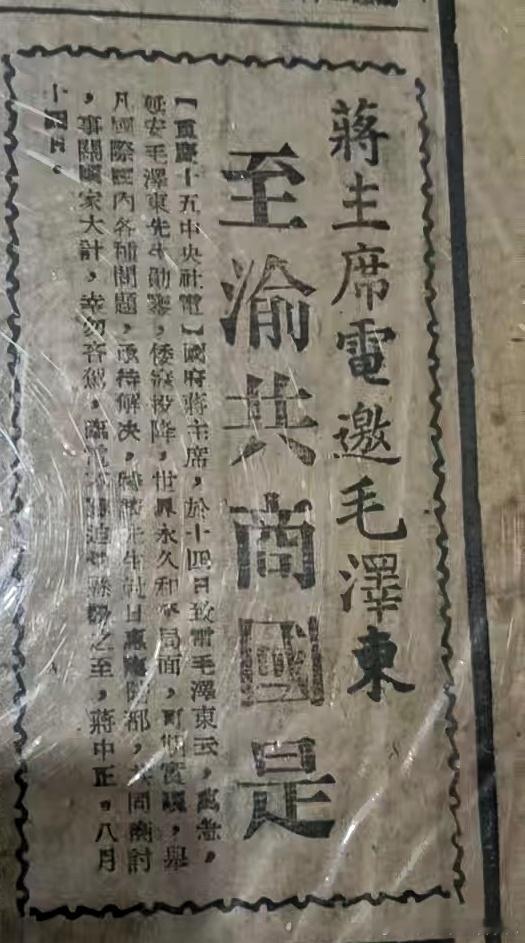 蔣主席電邀毛澤東
至渝共商國是
【重慶十五中央社電】國府蔣主席，於十四日致電毛澤東云，萬急，
延安毛澤東先生勛鑒，倭寇投降，世界永久和平局面，可期實現，舉
凡國際國內各種問題，亟待解決，特請先生日惠臨陪都，共同商討
，事關國家大計，幸勿吝駕，臨電不勝迫切懸盼之至，蔣中正。八月
十四日。